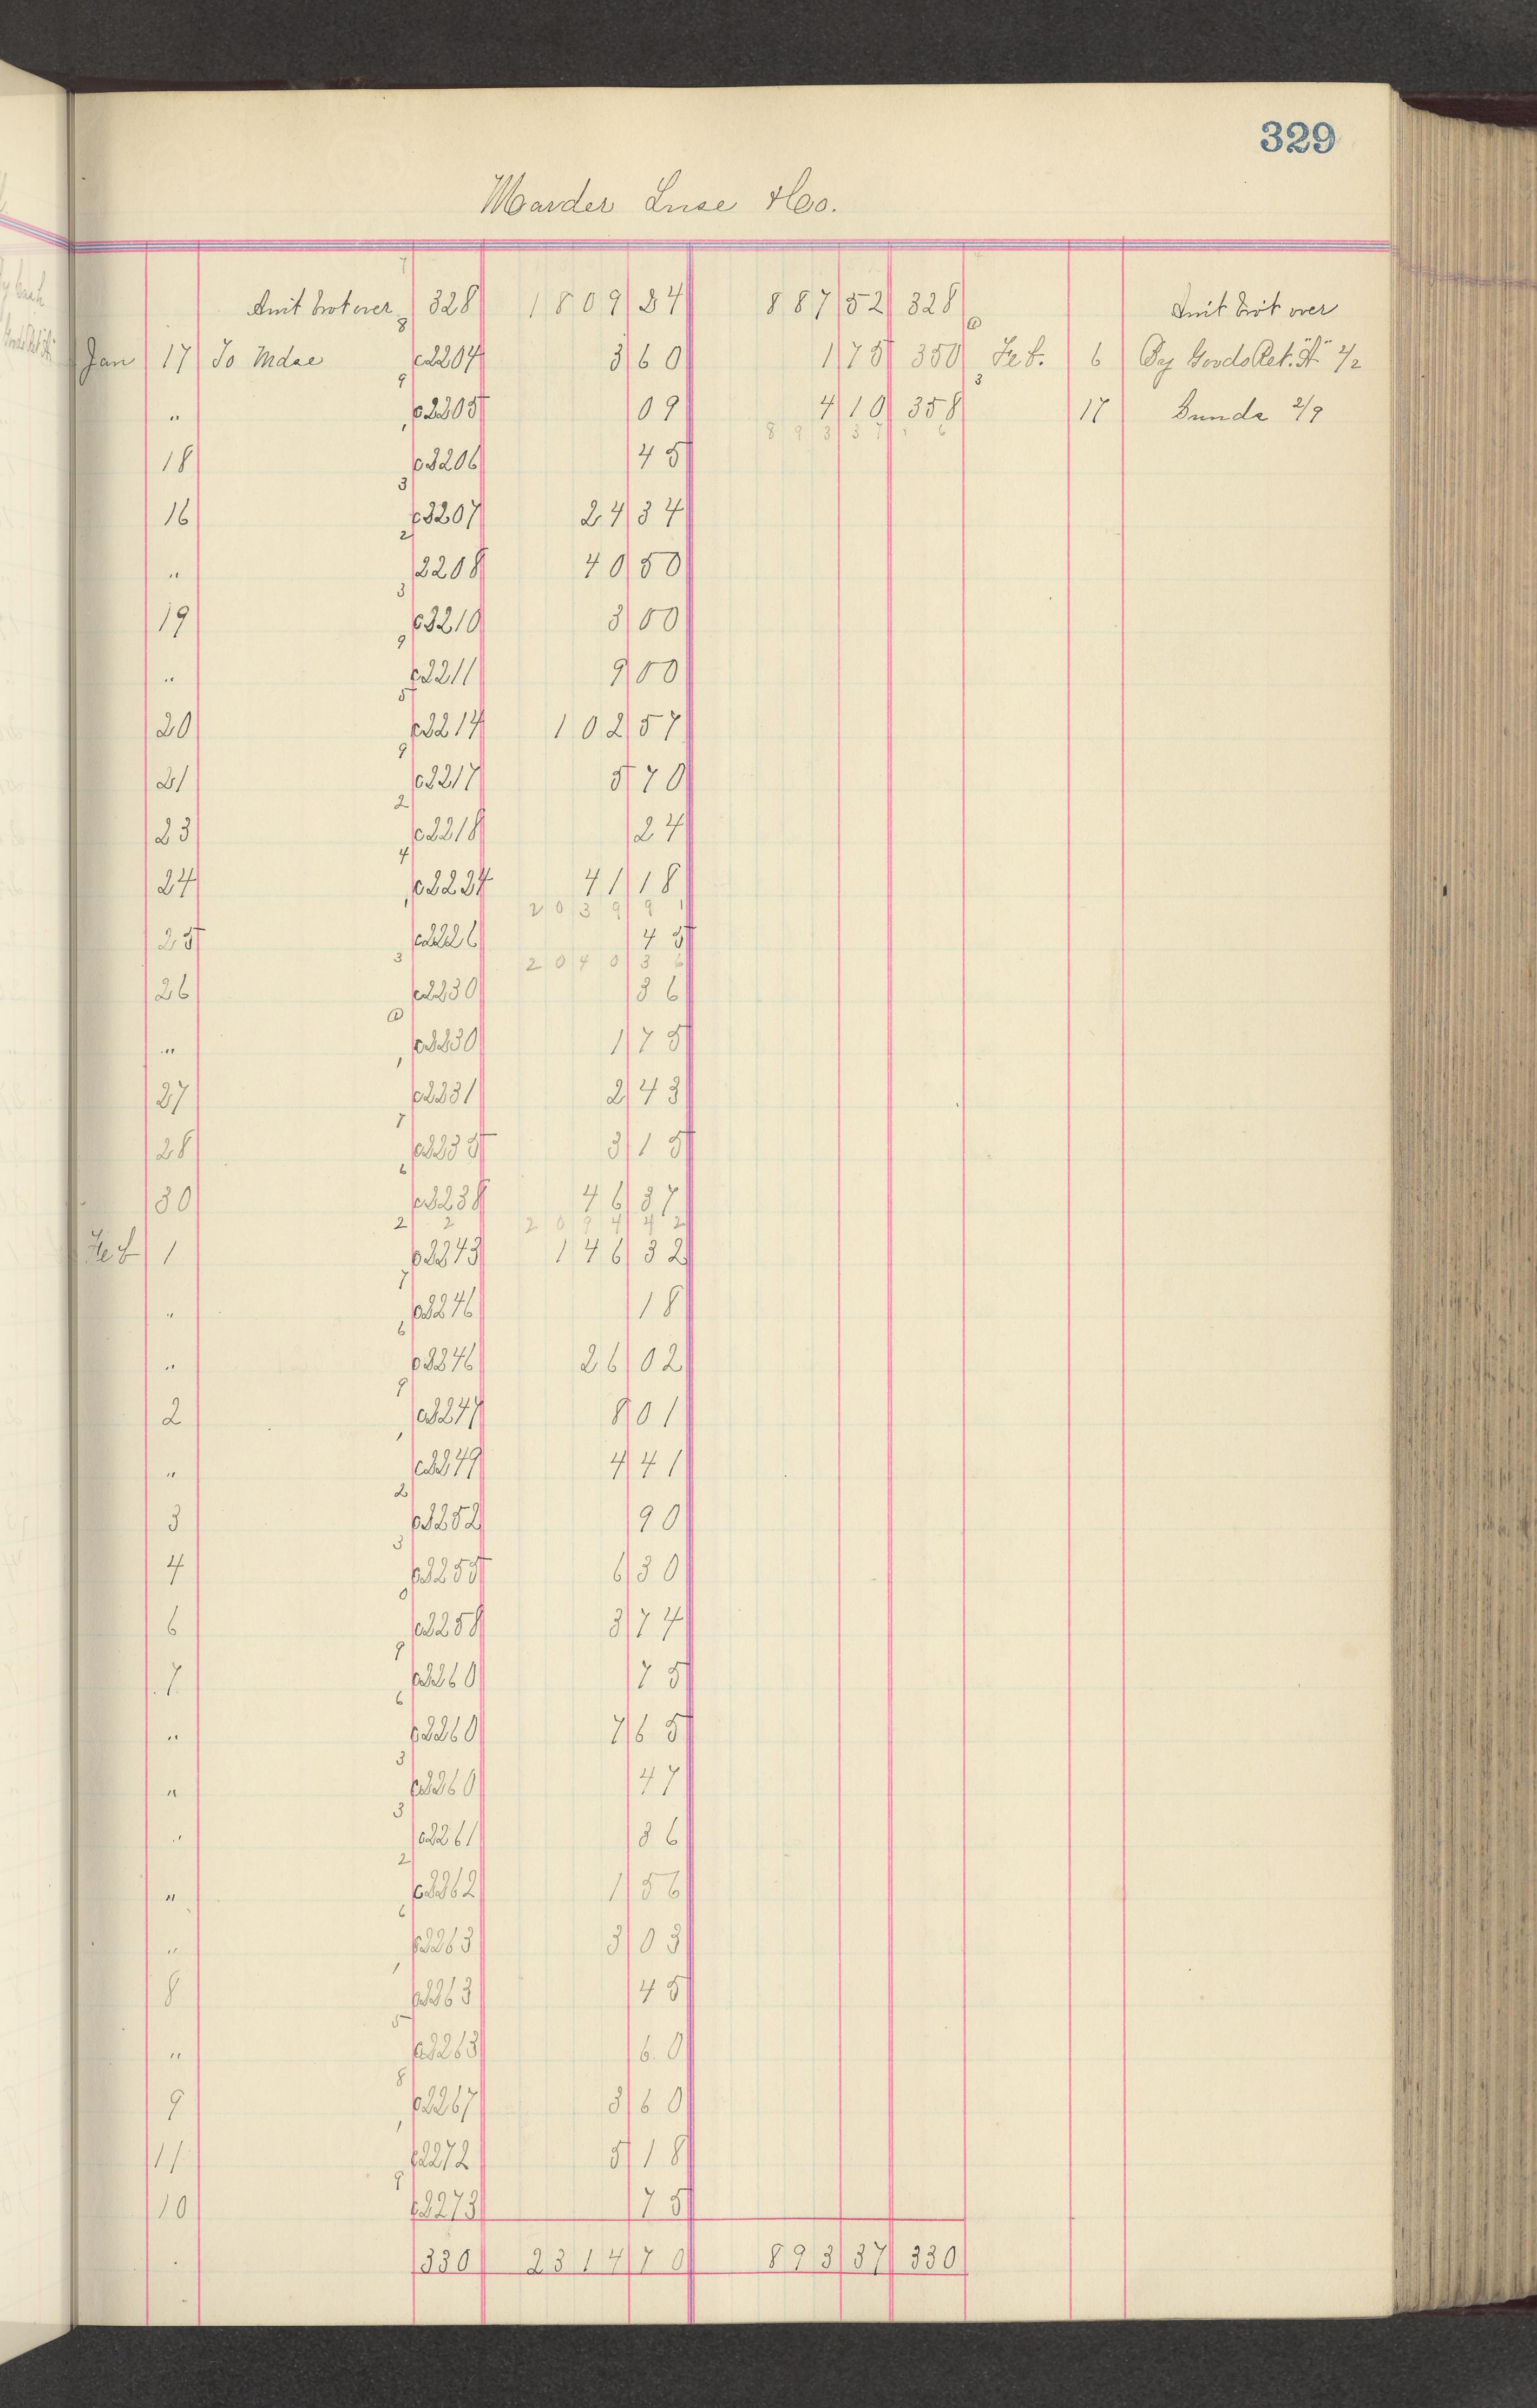 329
Marder Luse & Co.
Amt brot over 328 1809 34 887 52 328 Amt brot over
Jan 17 To Mdse c2204 3 60 1 75 350 Feb. 6 By Goods Ret. "A" 2/2
" c2205 09 4 10 358 17 Sunds 2/9
893 37
18 c2206 45
16 c2207 24 34
" 2208 40 50
19 c2210 3 00
" c2211 9 00
20 c2214 102 57
21 c2217 5 70
23 c2218 24
24 c2224 41 18
2039 91
25 c2226 45
2040 36
26 c2230 36
" c2230 1 75
27 c2231 2 43
28 c2235 3 15
30 c2238 46 37
2094 42
Feb 1 c2243 146 32
" c2246 18
" c2246 26 02
2 c2247 8 01
" c2249 4 41
3 c2252 90
4 c2255 6 30
6 c2258 3 74
7 c2260 75
" c2260 7 65
" c2260 47
" c2261 36
" c2262 1 56
" c2263 3 03
8 c2263 45
" c2263 60
9 c2267 3 60
11 c2272 5 18
10 c2273 75
330 2314 70 893 37 330